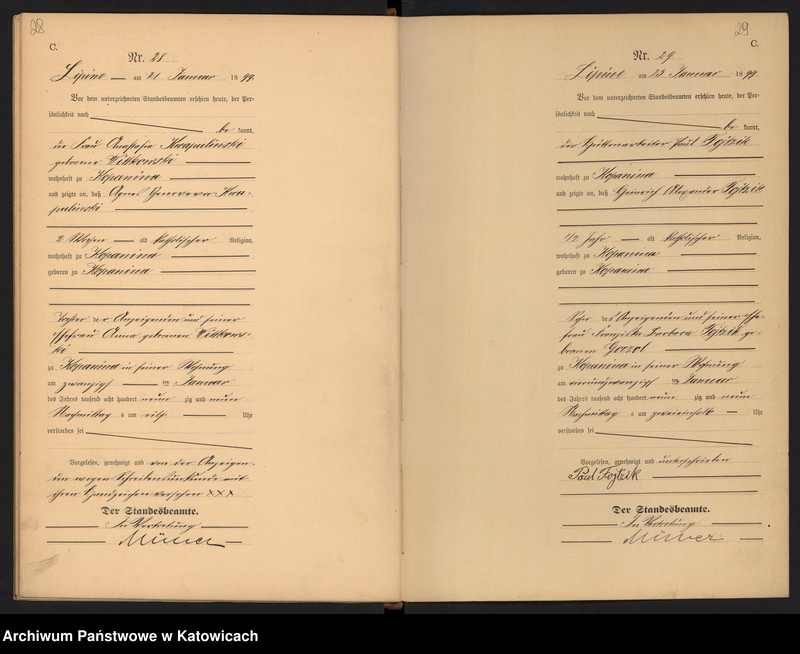 28
C.
Nr. 28
Lipine am 21 Januar 1899.
Vor dem unterzeichneten Standesbeamten erschien heute, der Per-
sönlichkeit nach
be kannt,
die Frau Anastasia Krapulinski
geborene Wittkowski
wohnhaft zu Kopanina
und zeigte an, daß Agnes Genovera Kra-
pulinski
2 Wochen alt katholischer Religion,
wohnhaft zu Kopanina
geboren zu Kopanina
Tochter der Anzeigenden und seiner
Ehefrau Anna geborenen Wittkows-
ki
zu Kopanina in seiner Wohnung
am zwanzigsten Januar
des Jahres tausend acht hundert neun zig und neun
Nachmittag s um elf Uhr
verstorben sei
Vorgelesen, genehmigt und von der Anzeigen-
den wegen Schreibensunkunde mit
ihren Handzeichen versehen XXX
Der Standesbeamte.
In Vertretung
Müller
29
C.
Nr. 29
Lipine am Januar 1899.
Vor dem unterzeichneten Standesbeamten erschien heute, der Per-
sönlichkeit nach
be kannt,
der Hüttenarbeiter Paul Fojtzik
wohnhaft zu Kopanina
und zeigte an, daß Heinrich Alexander Fojtzik
1/2 Jahr alt katholischer Religion,
wohnhaft zu Kopanina
geboren zu Kopanina
Sohn des Anzeigenden und seiner Ehe-
frau Franziska Barbara Fojtzik ge-
borenen
zu Kopanina in seiner Wohnung
am Januar
des Jahres tausend acht hundert neun zig und neun
Nachmittag s um Uhr
verstorben sei
Vorgelesen, genehmigt und unterschrieben
Paul Fojtzik
Der Standesbeamte.
In Vertretung
Müller
Archiwum Państwowe w Katowicach